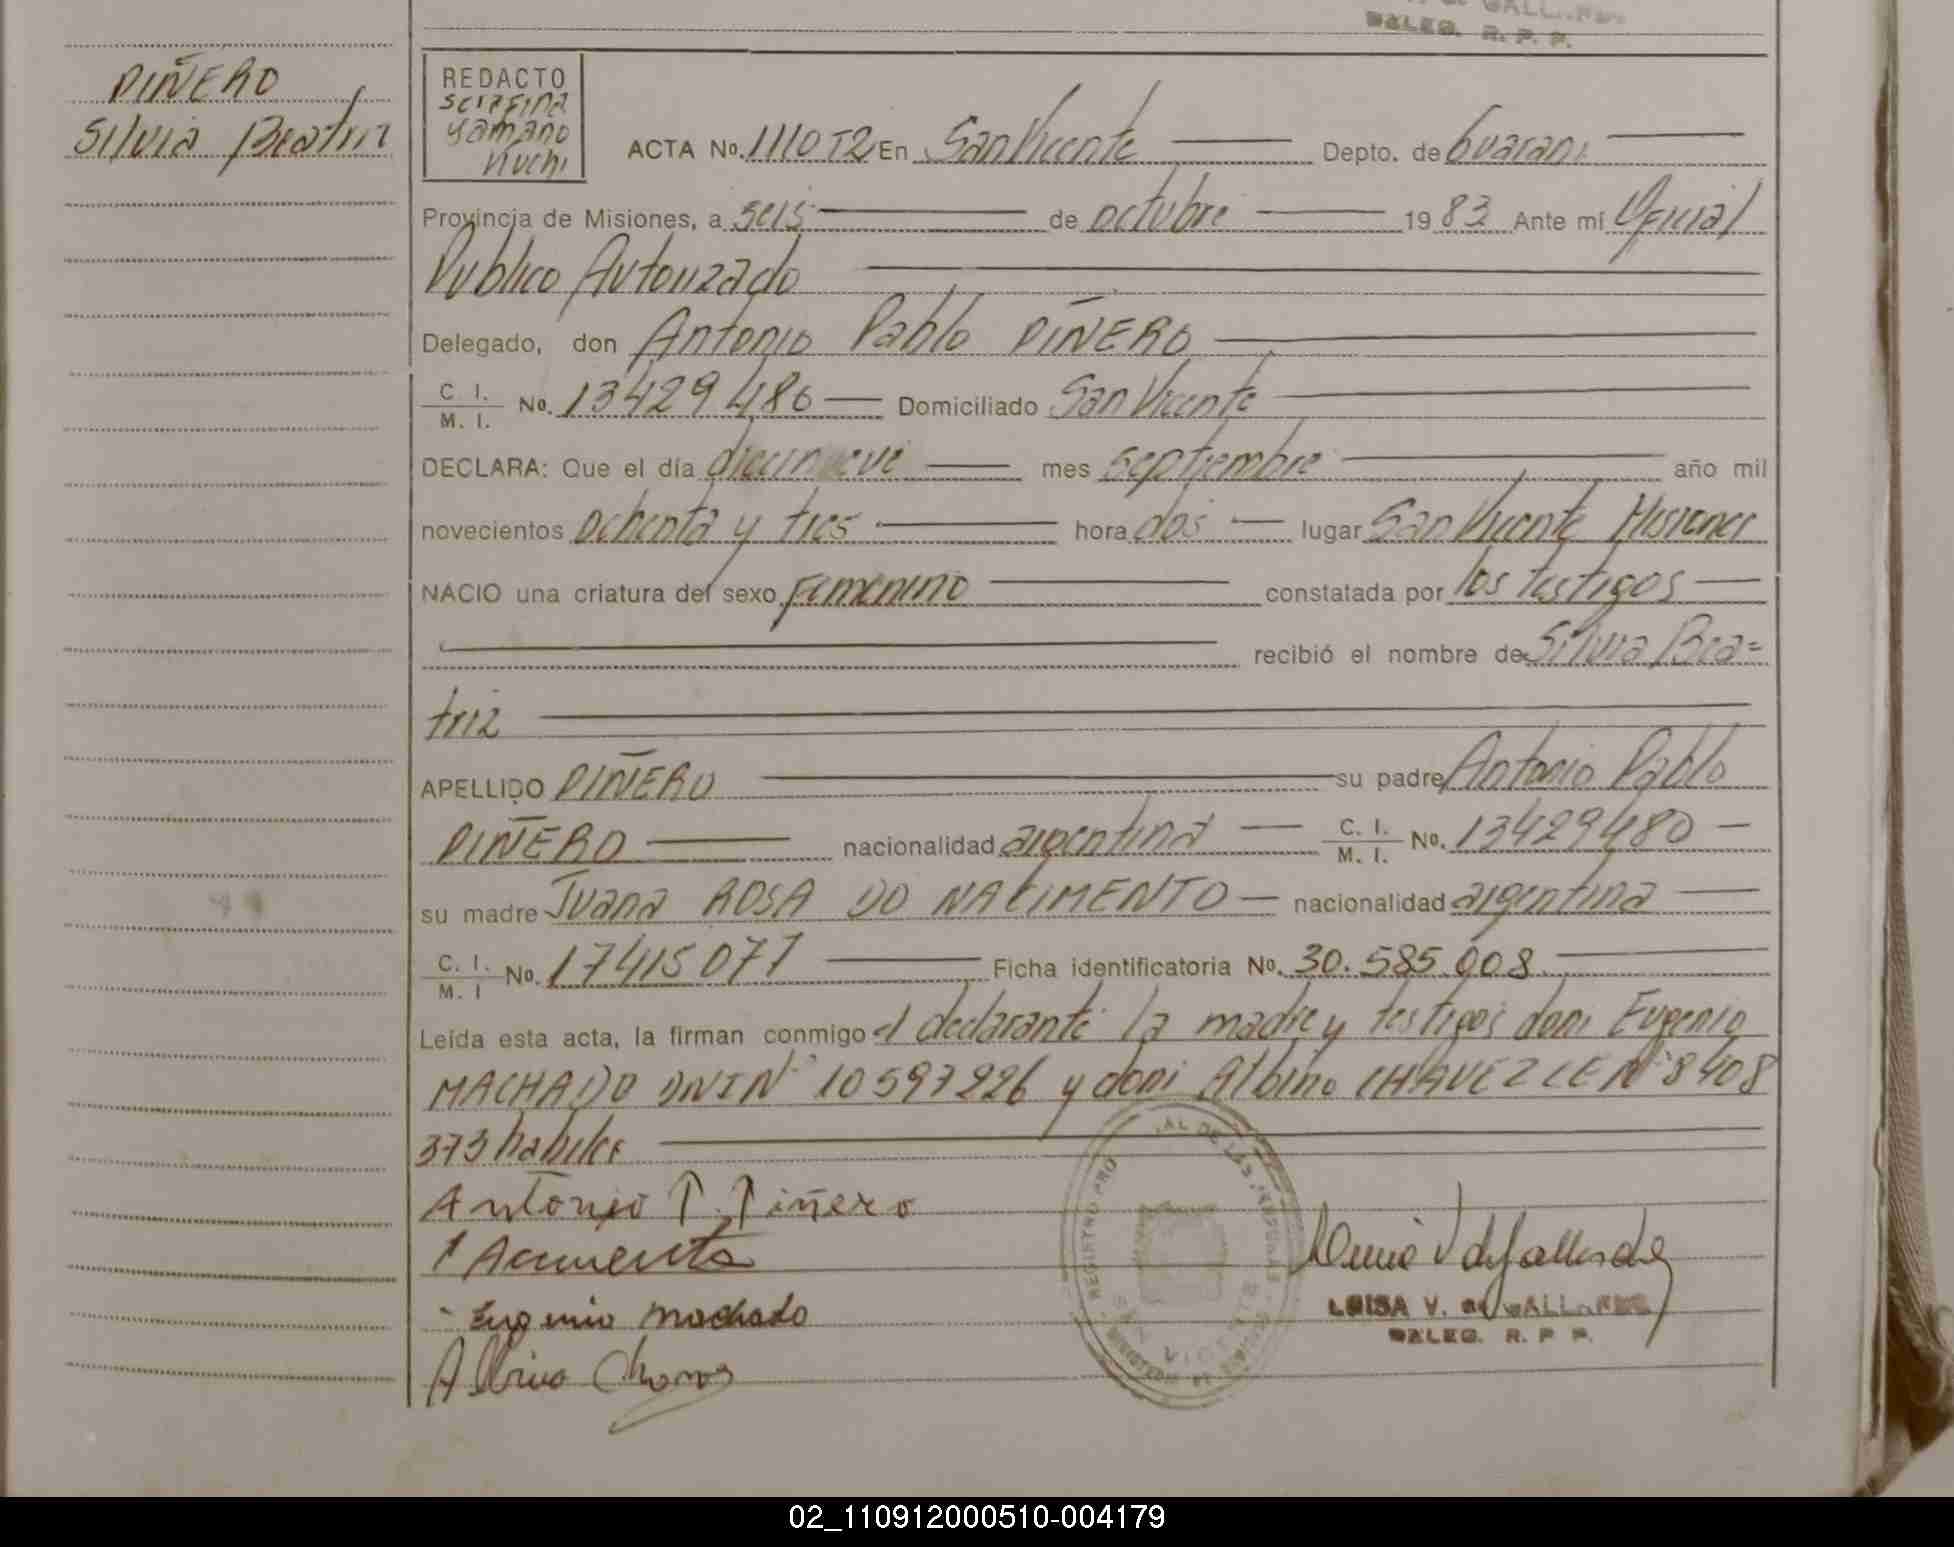 DALEG. R. P. P.
PIÑERO
Silvia Beatriz
REDACTO
Yamano
ACTA No. 1110 T2 En San Vicente Depto. de Guarani
Provincia de Misiones, a seis de octubre 1983 Ante mi Oficial
Publico Autorizado
Delegado, don Antonio Pablo PIÑERO
C. I. / M. I. No. 13429480 Domiciliado San Vicente
DECLARA: Que el día diecinueve mes septiembre año mil
novecientos ochenta y tres hora dos lugar San Vicente Misiones
NACIO una criatura del sexo femenino constatada por los testigos
recibió el nombre de Silvia Bea=
triz
APELLIDO PIÑERO su padre Antonio Pablo
PIÑERO nacionalidad argentina C. I. / M. I. No. 13429480
su madre Juana ROSA DO NACIMENTO nacionalidad argentina
C. I. / M. I No. 17415077 Ficha identificatoria No. 30.585.008
Leída esta acta, la firman conmigo el declarante la madre y testigos don: Eugenio
MACHADO DNI N° 10597226 y don: Albino CHAVEZ LE N° 8408
373 habiles
Antonio P. Piñero
Eugenio Machado
Albino
LUISA V. de GALLARDO
DALEG. R. P. P.
02_110912000510-004179